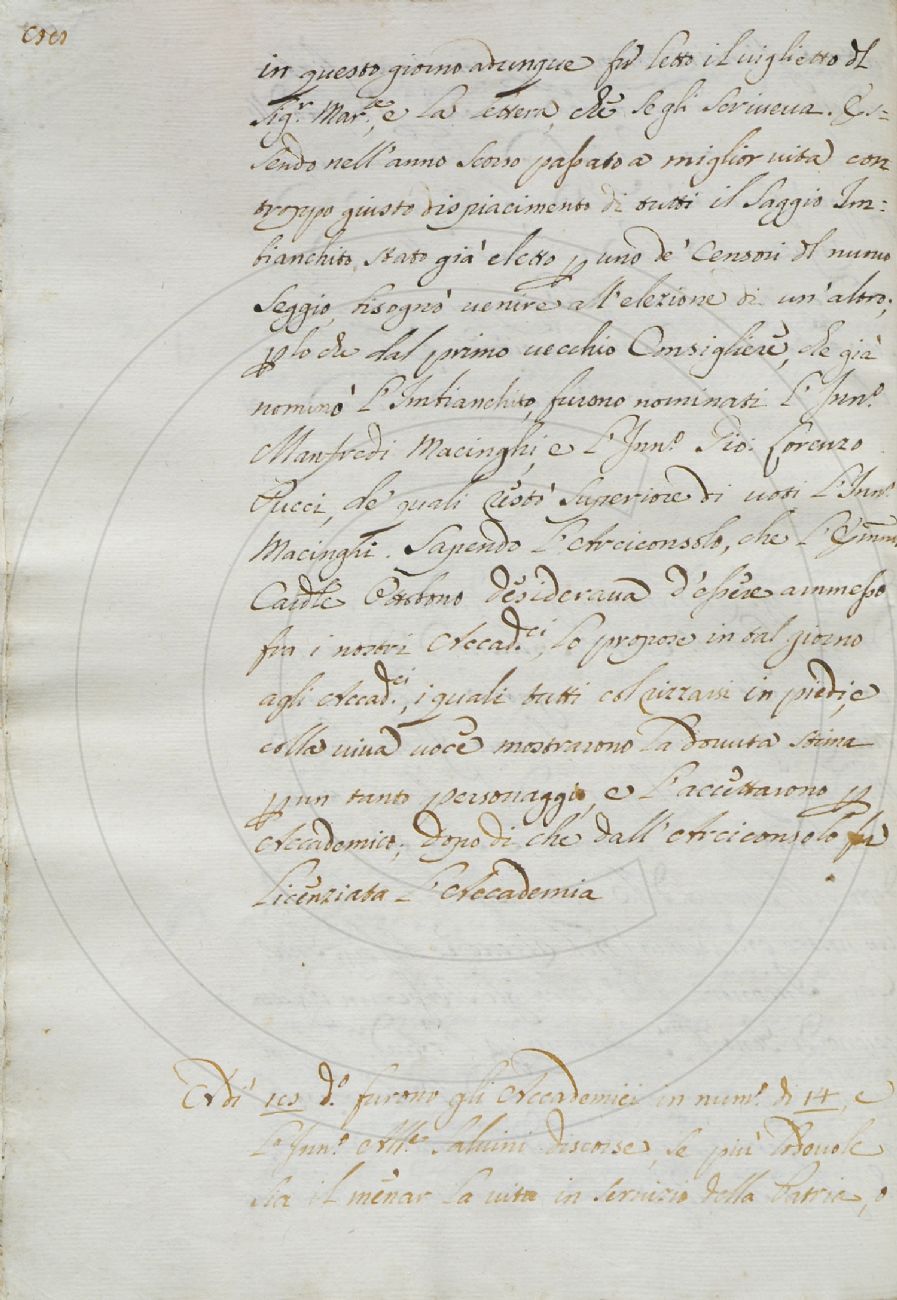 in questo giorno adunque fù letto il viglietto dl
Sig.r Mar.se, e la lettera, che se gli scriveva. Es=
sendo nell'anno scorso passato a miglior vita con
troppo giusto dispiacimento di tutti il Saggio Im=
bianchito, stato già eletto p uno de' Censori dl nuovo
Seggio, bisognò venire all'elezione di un'altro;
plo che dal primo vecchio Consigliere, che già
nominò l'Imbianchito, furono nominati l'Inn.o
Manfredi Macinghi, e l'Inn.o Gio: Lorenzo
Pucci, de' quali restò superiore di voti l'Inn.o
Macinghi. Sapendo l'Arciconsolo, che l'
Cardle Ottobono desiderava d'essere ammesso
fra i nostri Accad.ci, lo propose in tal giorno
agli Accad.ci, i quali tutti col rizzarsi in piedi, e
colla viva voce mostrarono la dovuta stima
p un tanto personaggio, e l'accettarono p
Accademico; Dopo di che dall'Arciconsolo fù
licenziata l'Accademia
Adì d.o furono gli Accademici in num.o di 14, e
l'Inn.o Salvini discorse, se più lodevole
sia il menar la vita in servizio della Patria, o